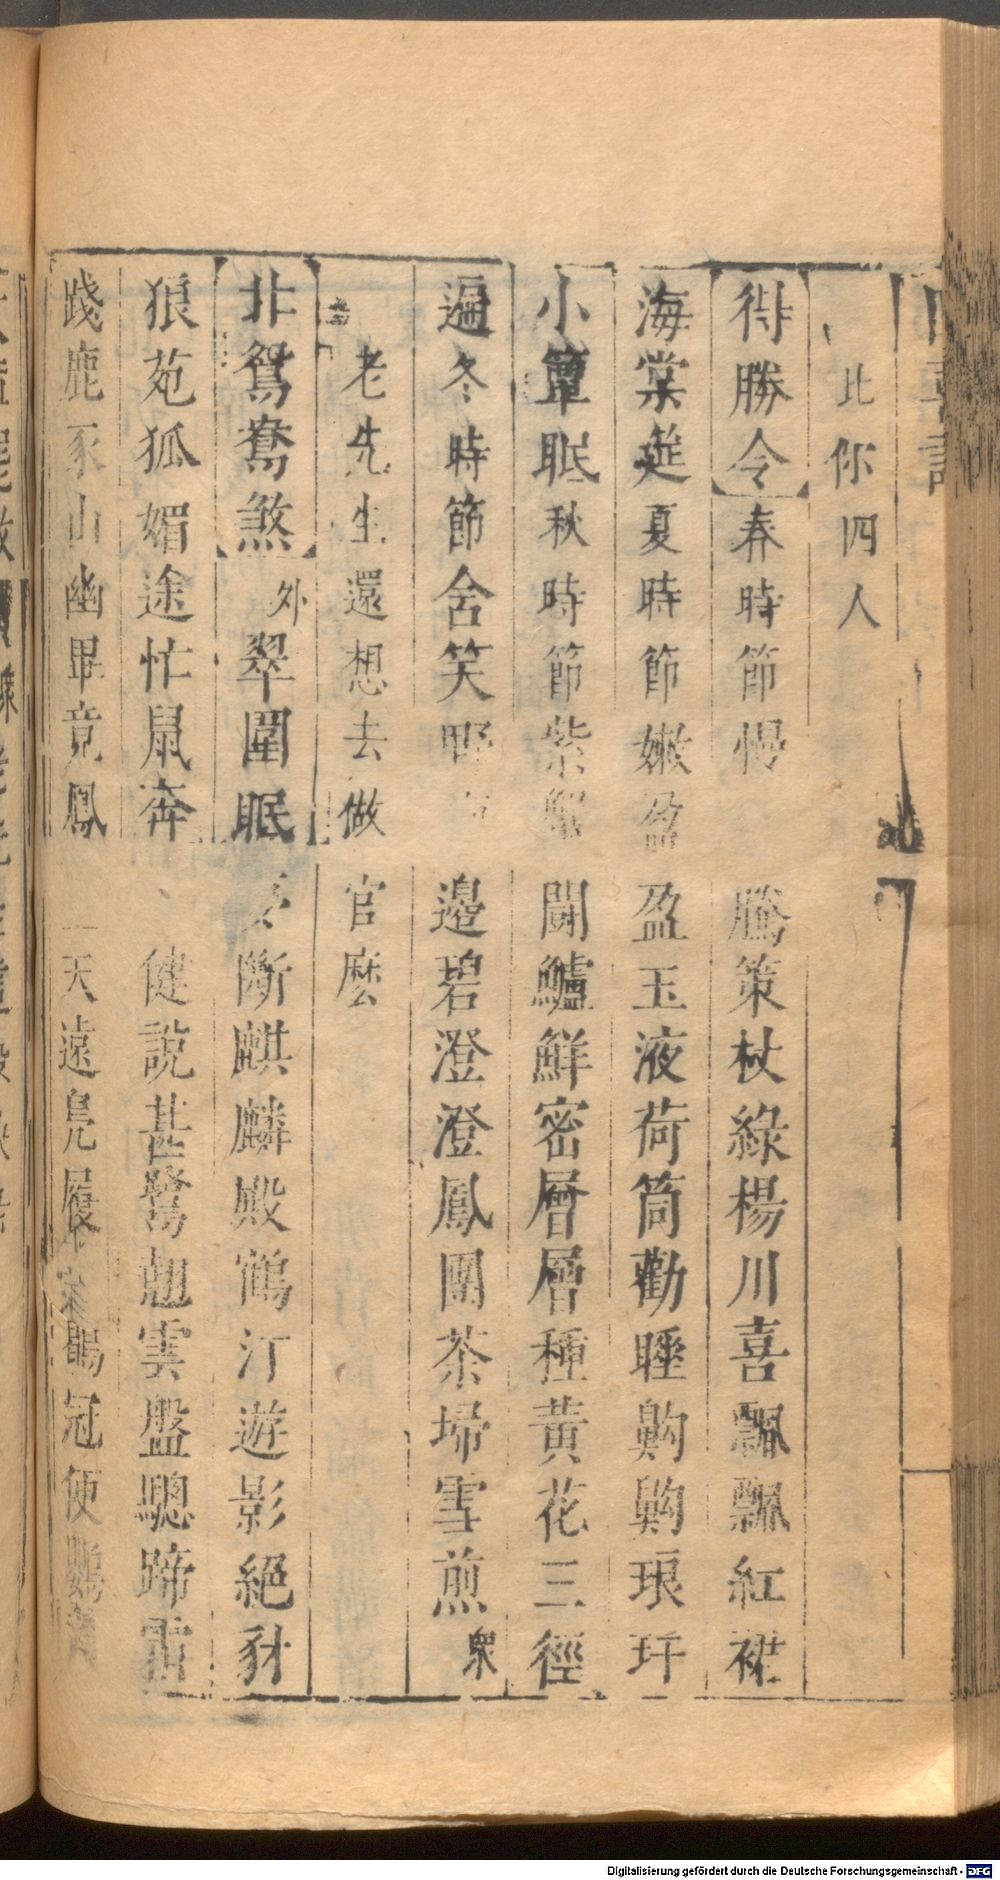 此你四人
得勝令春時節慢騰策杖綠楊川喜飄飄紅裙
海棠筵夏時節嫩盈盈玉液荷筒勸睡齁齁琅玕
小簟眠秋時節紫蟹鬪鱸鮮密層層種黃花三徑
遍冬時節含笑野邉碧澄澄鳳團茶埽雪煎衆
老先生還想去做官麽
北鴛鴦煞外翠圍眠斷麒麟殿鶴汀遊影絕豺
狼苑狐媚途忙鼠奔健說甚鷺翹雲盤驄蹄雷
踐鹿豕山幽畢竟鳳天遠鳧履鶡冠便鸚
Digitalisierung gefördert durch die Deutsche Forschungsgemeinschaft - DFG